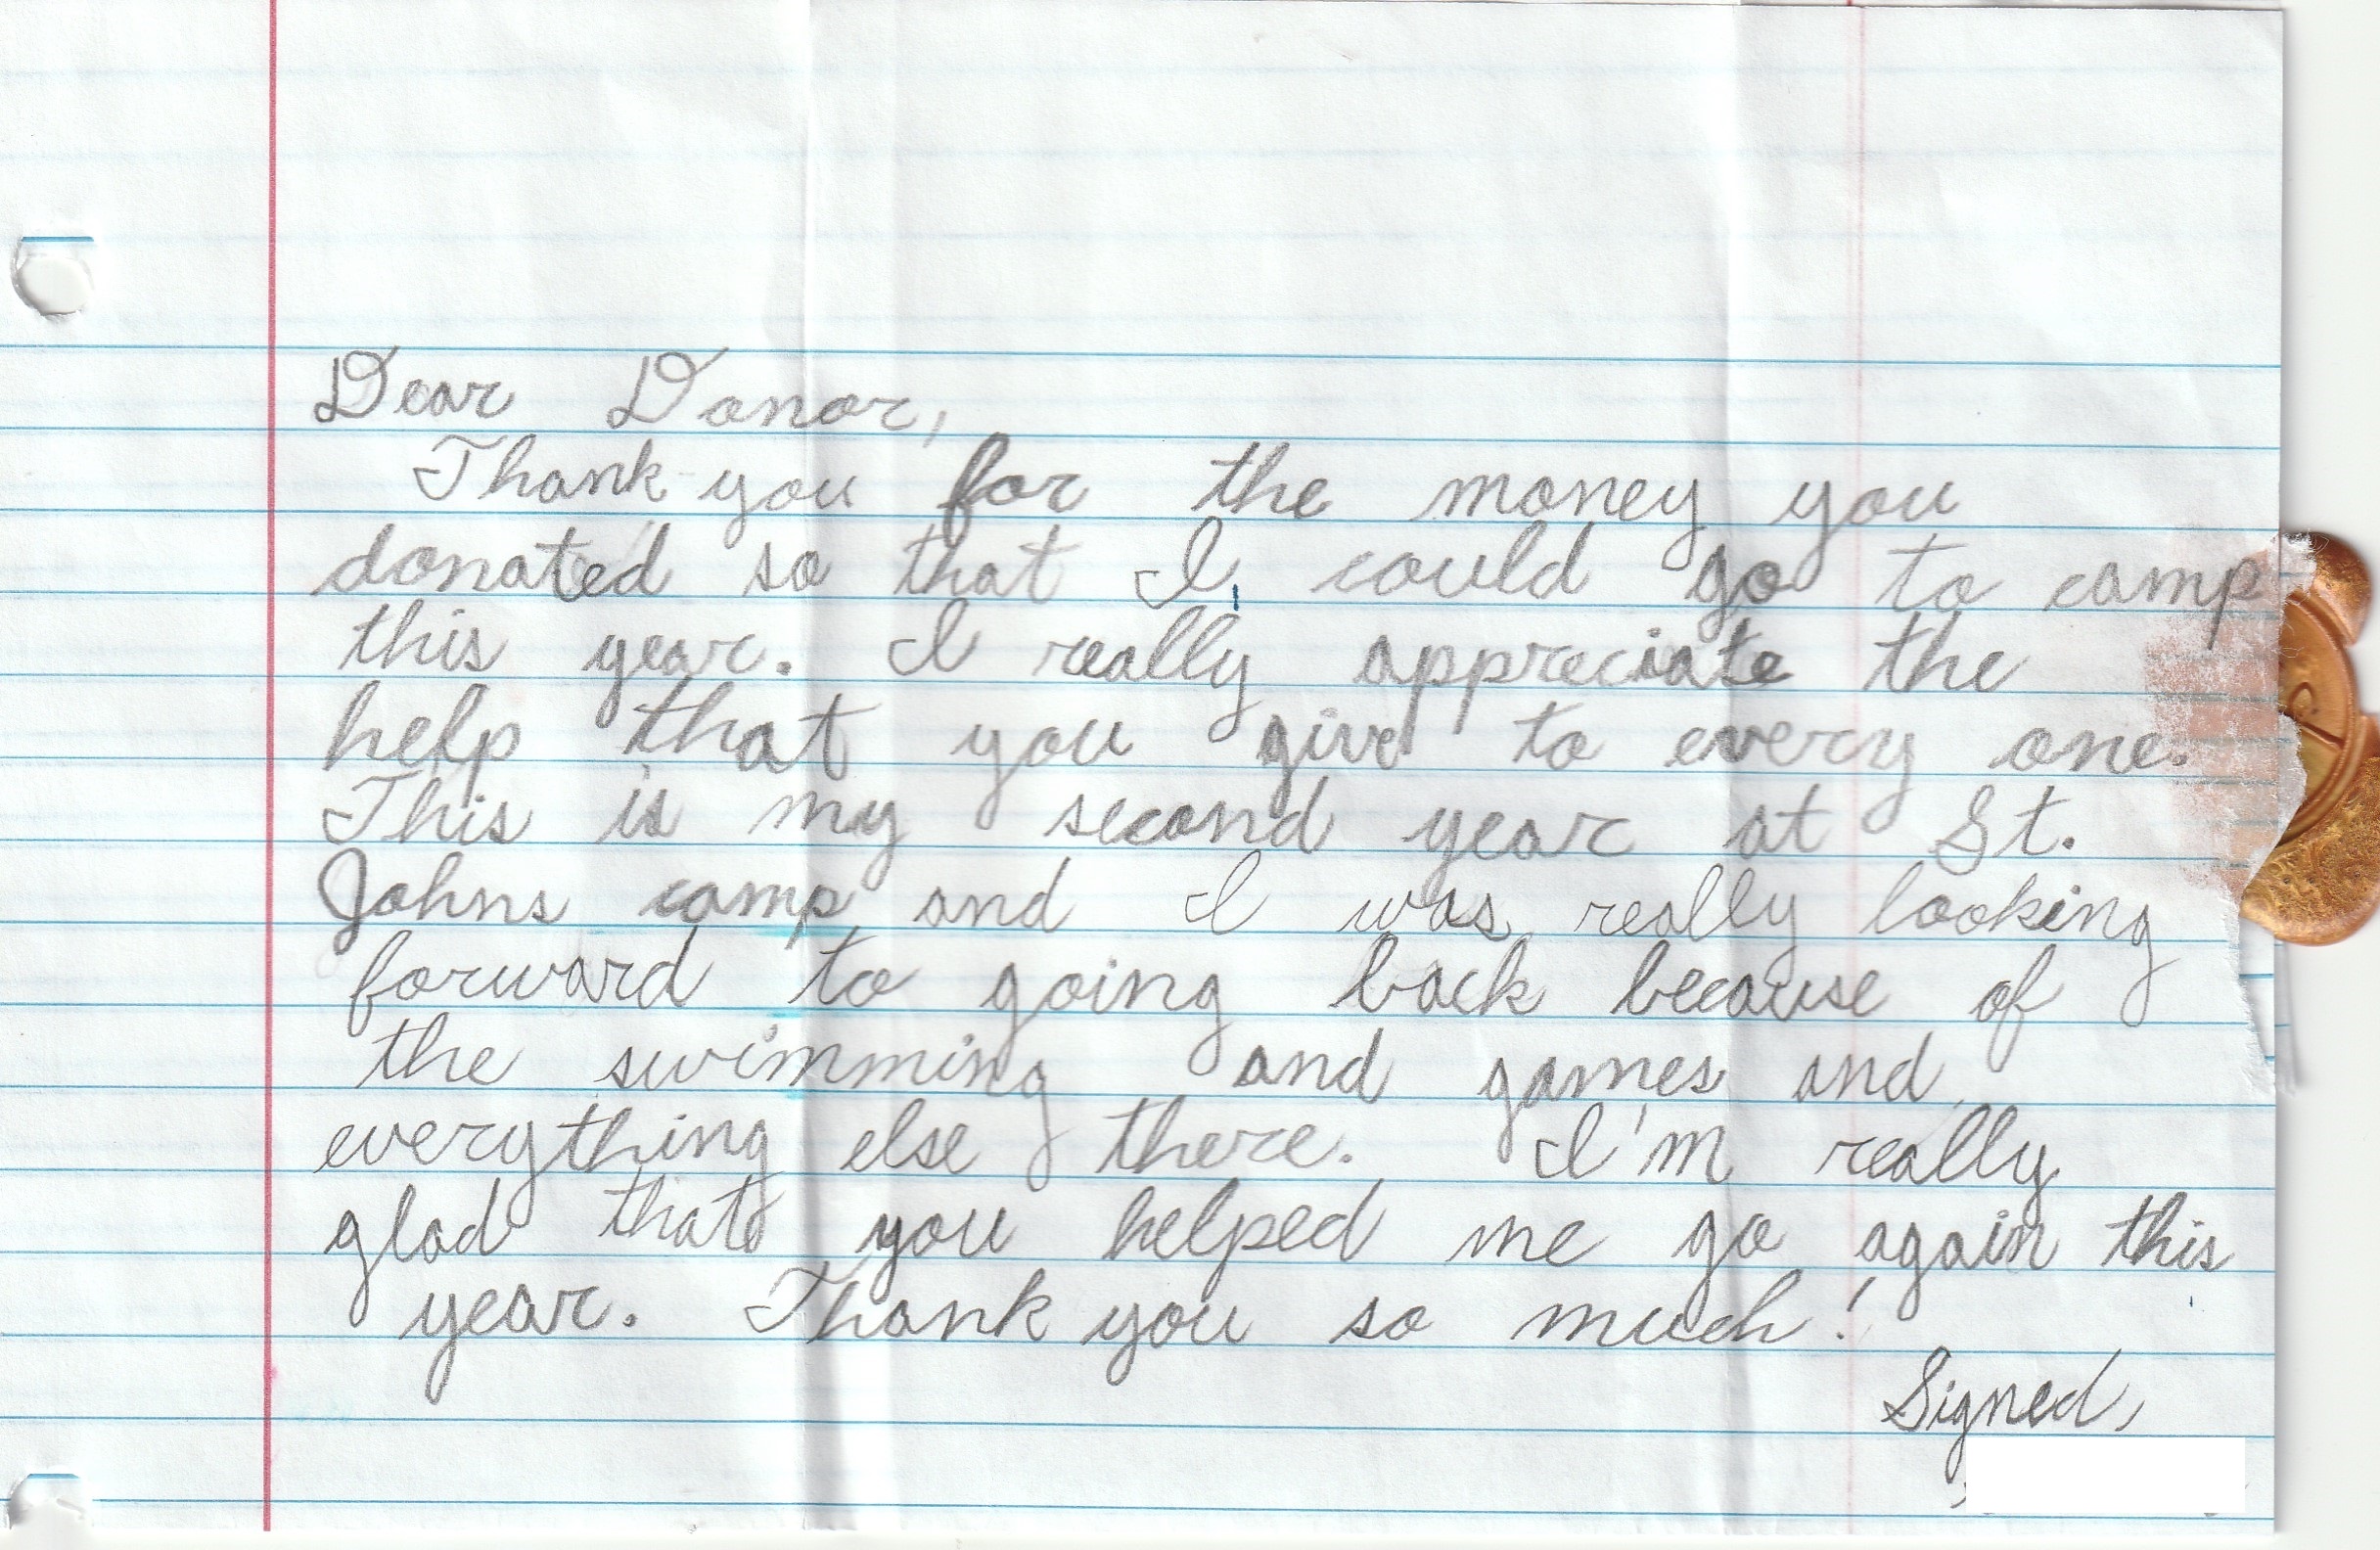 Dear Donor,
Thank you for the money you
donated so that I could go to camp
this year. I really appreciate the
help that you give to every one.
This is my second year at St.
Johns camp and I was really looking
forward to going back because of
the swimming and games and
everything else there. I'm really
glad that you helped me go again this
year. Thank you so much!
Signed,